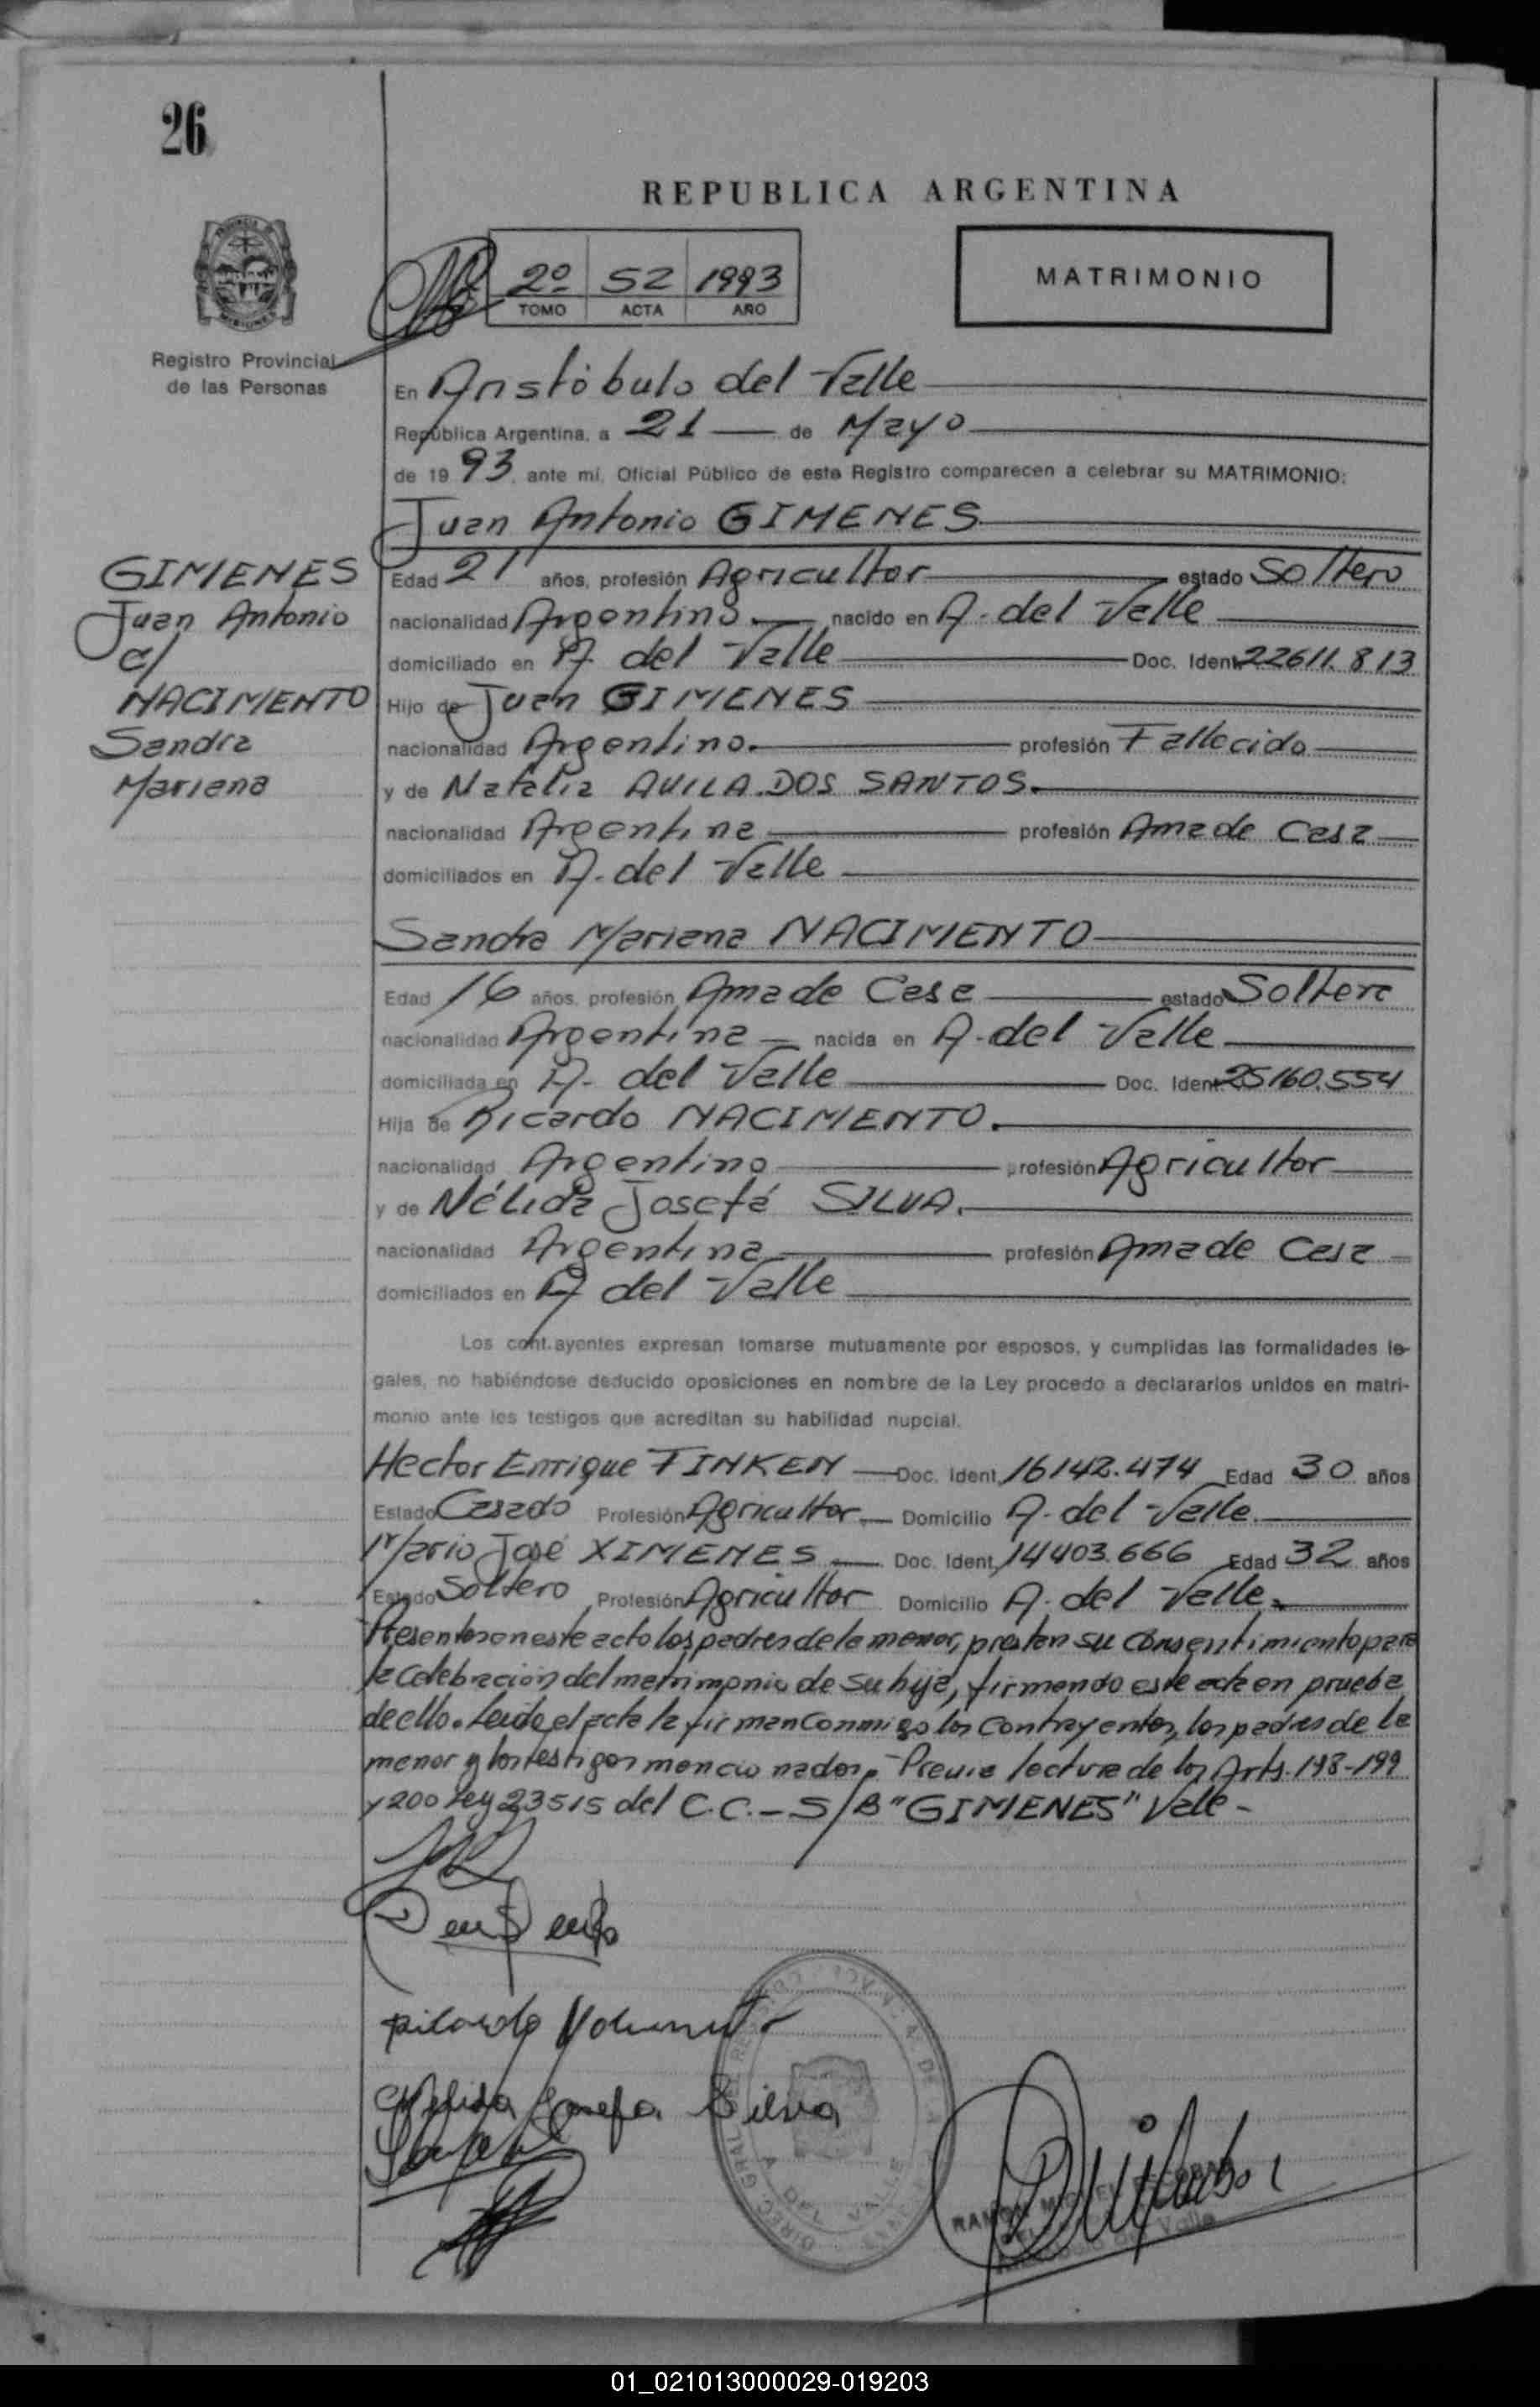 26
REPUBLICA ARGENTINA
2º 52 1993
TOMO ACTA AÑO
MATRIMONIO
Registro Provincial
de las Personas
En Aristóbulo del Valle
República Argentina, a 21 de Mayo
de 1993, ante mí, Oficial Público de este Registro comparecen a celebrar su MATRIMONIO:
Juan Antonio GIMENES
GIMENES
Juan Antonio
c/
NACIMIENTO
Sandra
Mariana
Edad 21 años, profesión Agricultor estado Soltero
nacionalidad Argentino. nacido en A. del Valle
domiciliado en A. del Valle Doc. Ident. 22611.813
Hijo de Juan GIMENES
nacionalidad Argentino. profesión Fallecido
y de Natalia AVILA DOS SANTOS.
nacionalidad Argentina profesión Ama de Casa
domiciliados en A. del Valle
Sandra Mariana NACIMIENTO
Edad 16 años, profesión Ama de Casa estado Soltera
nacionalidad Argentina nacida en A. del Valle
domiciliada en A. del Valle Doc. Ident. 25160.554
Hija de Ricardo NACIMENTO.
nacionalidad Argentino profesión Agricultor
y de Nélida Josefá SILVA.
nacionalidad Argentina profesión Ama de Casa
domiciliados en A del Valle
Los contrayentes expresan tomarse mutuamente por esposos, y cumplidas las formalidades le-
gales, no habiéndose deducido oposiciones en nombre de la Ley procedo a declararlos unidos en matri-
monio ante los testigos que acreditan su habilidad nupcial.
Hector Enrique FINKEN Doc. Ident. 16142.474 Edad 30 años
Estado Casado Profesión Agricultor Domicilio A. del Valle.
Mario José XIMENES Doc. Ident. 14403.666 Edad 32 años
Estado Soltero Profesión Agricultor Domicilio A. del Valle.
Presentes en este acto los padres de la menor, prestan su consentimiento para
la celebración del matrimonio de su hija, firmando este acta en prueba
de ello. Leída el acta la firman conmigo los contrayentes, los padres de la
menor y los testigos mencionados. - Previa lectura de los Arts. 198-199
y 200 Ley 23515 del C.C. - S/B "GIMENES" Vale -
Nelida Josefa Silva
DIREC. GRAL. DEL
A. DEL VALLE
RAMON MIGUEL
01_021013000029-019203